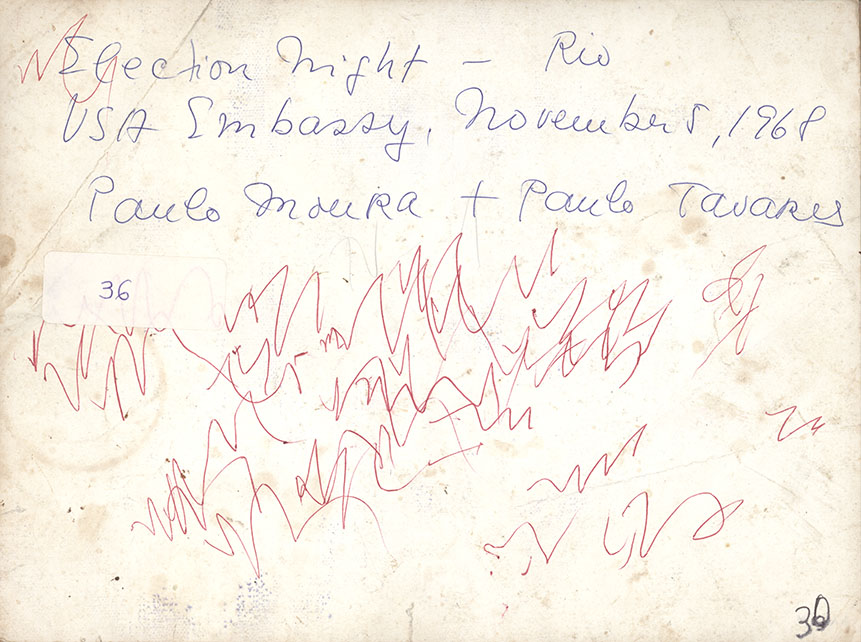 Election Night - Rio
USA Embassy, November 5, 1968
Paulo Moura + Paulo Tavares
36
36